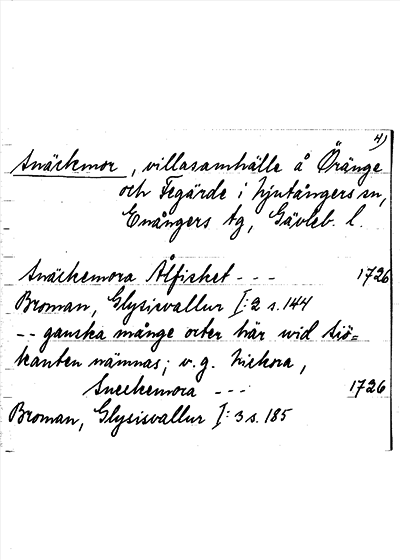 4)
Snäckmor, villasamhälle å Öränge
och Tegärde i Njutångers sn,
Enångers tg, Gävleb. l.
Snäckemora Ålfisket - - - 1726
Broman, Glysisvallur I:2 s. 144
-- ganska månge orter här wid Siö=
kanten nämnas; v.g. Niskora,
Sneckemora - - - 1726
Broman, Glysisvallur I:3 s. 185